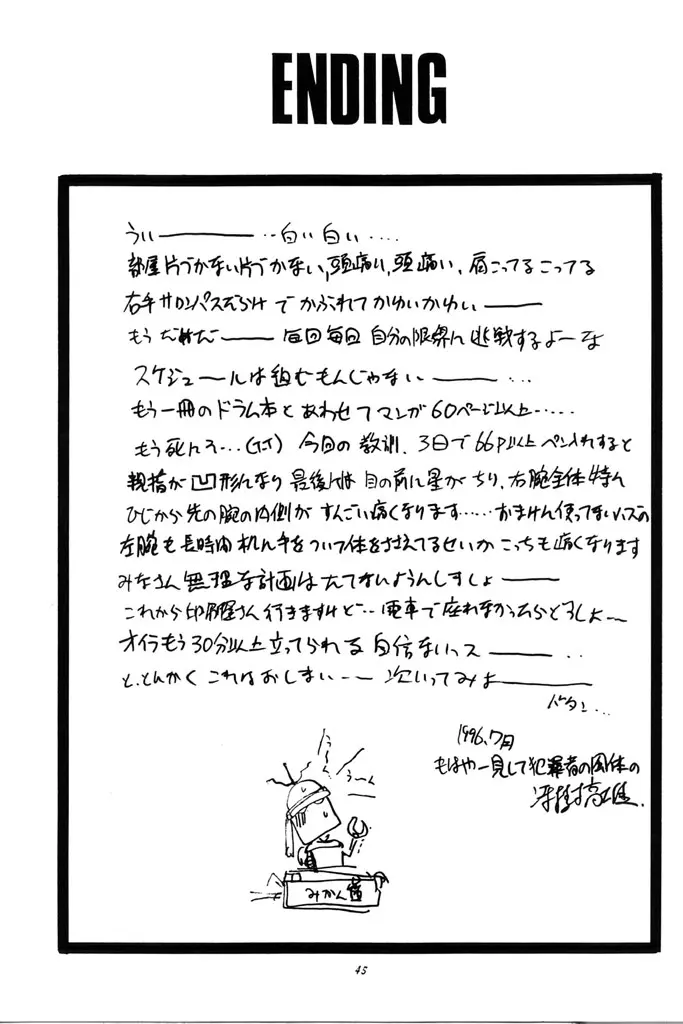 ENDING
うぃ――――‥白い白い‥‥
部屋片づかない片づかない,頭痛い,頭痛い,肩こってるこってる
右手サロンパスだらけでかぶれてかゆいかゆい――
もうだめだ―― 毎回毎回自分の限界に挑戦するよーな
スケジュールは組むもんじゃない――‥‥
もう一冊のドラム本とあわせてマンガ60ページ以上‥‥‥
もう死んで‥‥(T_T) 今回の教訓. 3日で66P以上ペン入れすると
親指が凹形になり最後には目の前に星がちり、右腕全体特に
ひじから先の腕の内側がすんごい痛くなります‥‥‥おまけに使ってないハズの
左腕も長時間机に手をついて体をささえてるせいかこっちも痛くなります
みなさん無理な計画はたてないようにしましょ――
これから印刷屋さん行きますけど‥‥電車で座れなかったらどうしよ〜
オイラもう30分以上立ってられる自信ないっス――‥‥
と、とにかくこれはおしまい〜〜 次いってみよ――――
バタン‥‥
1996.7月
もはや一見して犯罪者の風体の
う〜ん
う〜ん
みかん
45